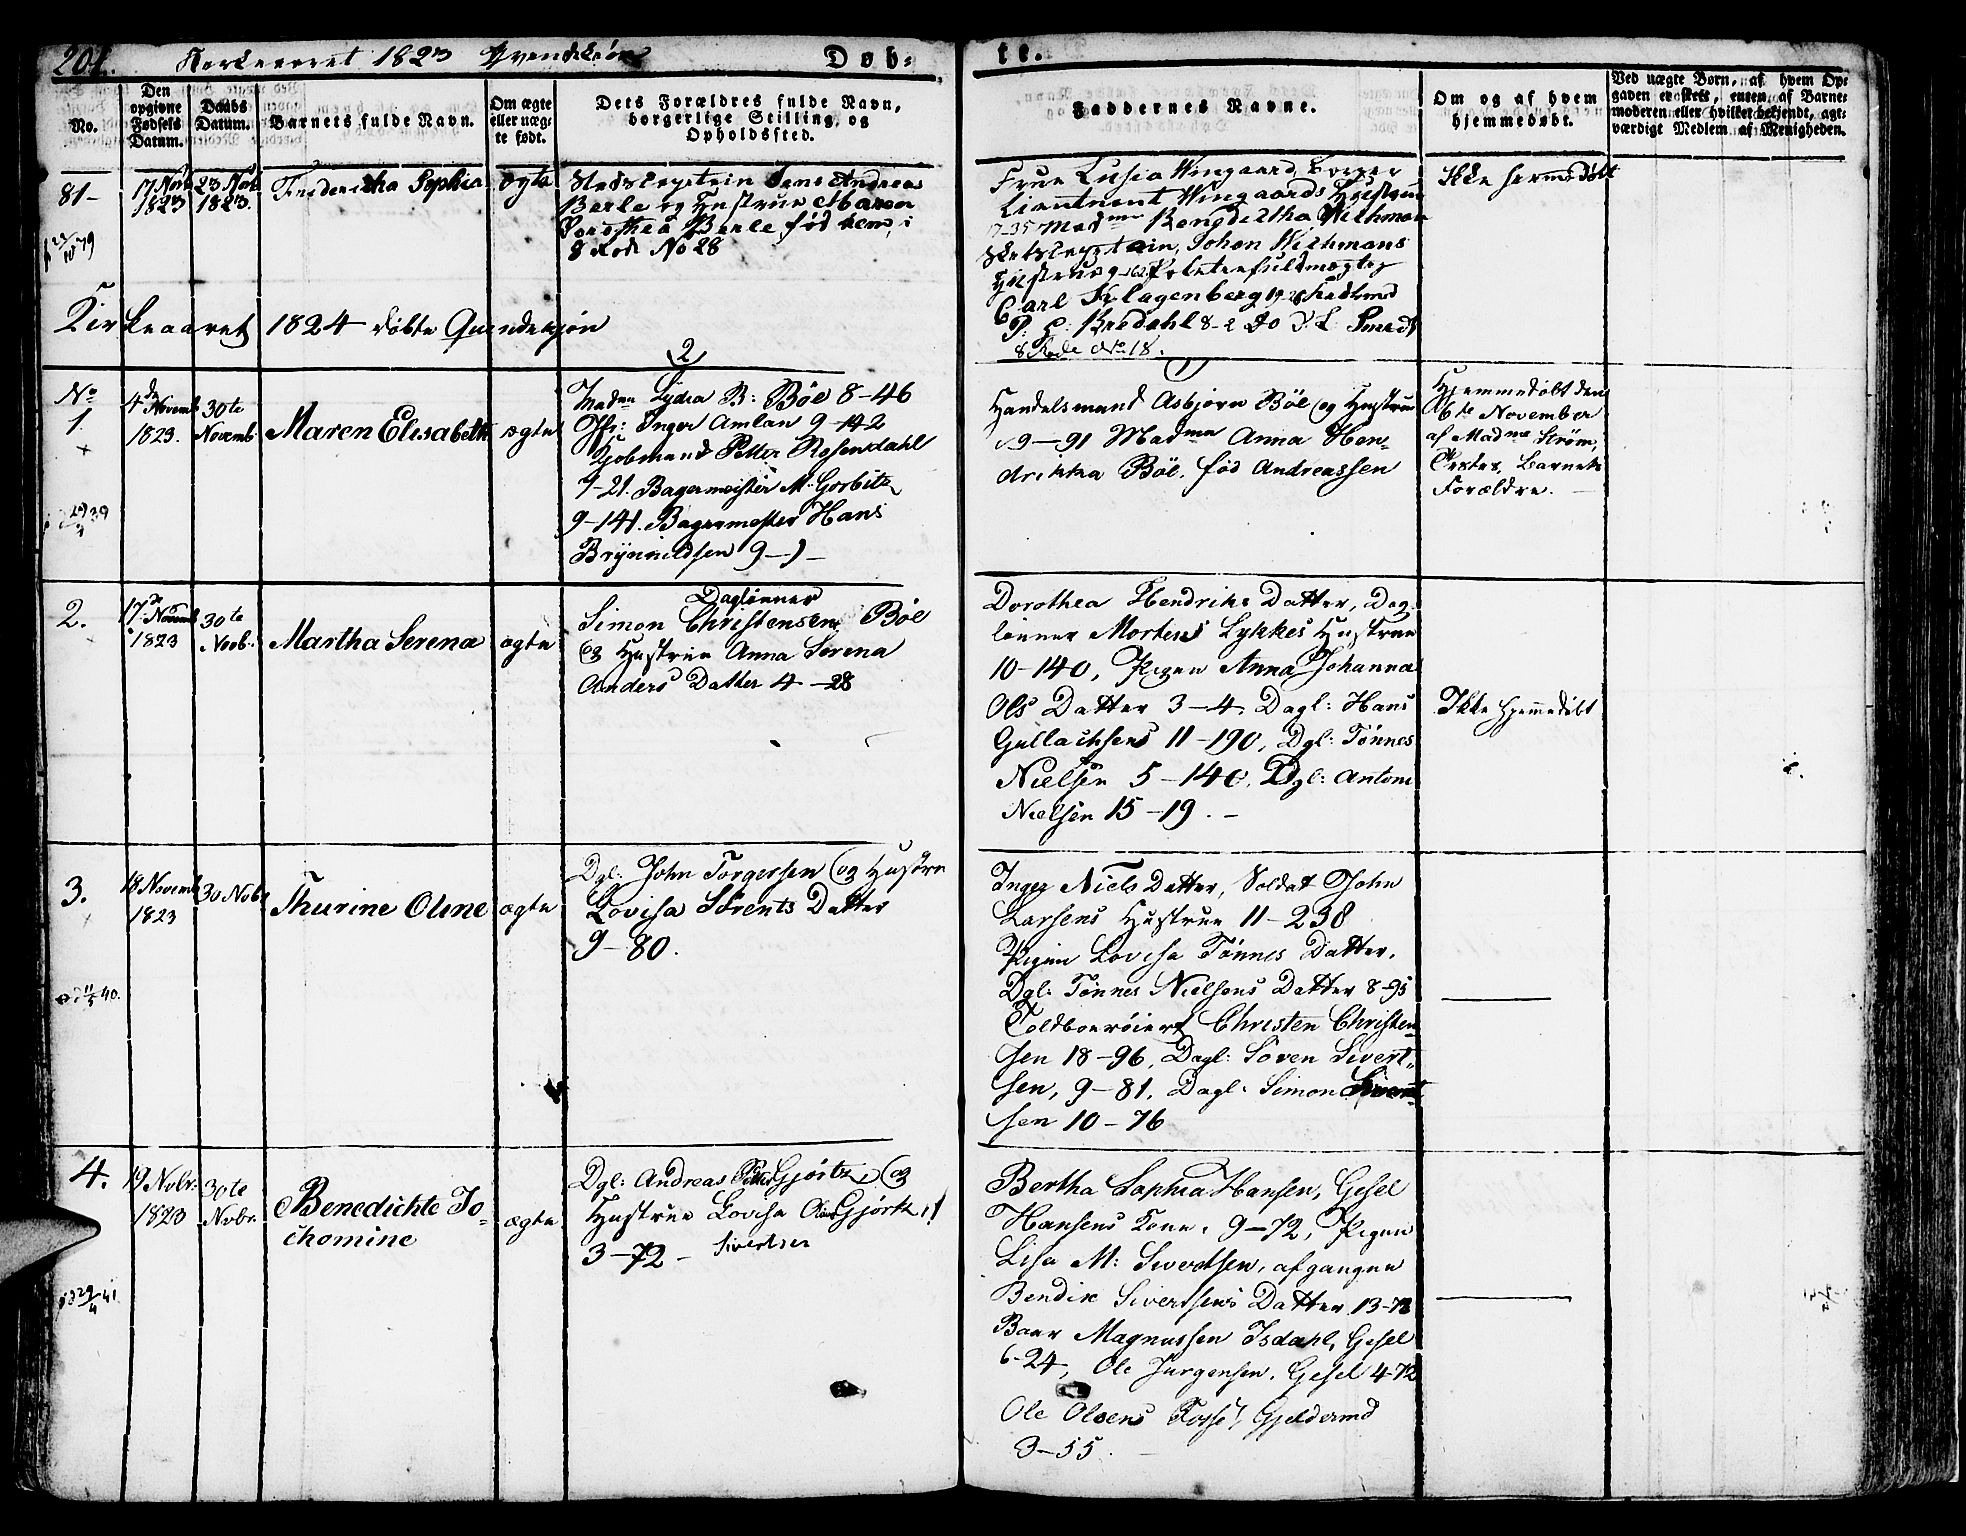 201. Kirkeaaret 1823 Qvendekiøn Døb-
te.
No.
Den
opgivne
Fødsels
Datum.
Daabs
Datum.
Barnets fulde Navn.
Om ægte
eller uæg-
te født.
Dets Forældres fulde Navn,
borgerlige Stilling, og
Opholdssted.
Faddernes Navne.
Om og af hvem
hjemmedøbt.
Ved uægte Børn, af hvem Op-
gaven er skeet, enten af Barne-
moderen eller hvilket bekjendt, agt-
værdigt Medlem af Menigheden.
81-
17 Nov
1823
23 Nov
1823.
Friedericha Sophia
ægte
Andreas
Berle og Hustrue Maren
Dorothea Berle, fød Rem, i
8 Rode No 28
Frue Lusia Wingaard, Borger
Lieutnent Wingaards Hustrue
17-35 Madme Bengdictha Wichman
Johan Wichmans
Hustrue 9- Politiefuldmægtig
Carl Klagenberg 19-28
P: H: Kredahl 8-2 do J. L. Smedt
8 Rode No 18.
Ikke hiemedøbt
Kirkeaaret 1824 døbte Qvindekjøn
No
1.
4de Novemb
1823.
30te
Novemb
Maren Elisabeth
ægte
2
Madm Lydia B: Böe 8-46
Jfr: Inger Amlan 9-142
Kjøbmand Petter Rosendahl
9-21. Bagermeister M: Gorbitz
9-141. Bagermester Hans
Brynnildsen 9-)-
1
Handelsmand Asbjørn Böe og Hustrue
9-91 Madme Anna Hen-
drikka Böe. fød Andreassen
Hjemmedøbt den
6te November
af Madme Strøm,
efter Barnets
Forældre.
19/4 39
2.
17de Novemb
1823
30te
Novb.
Martha Serena
ægte
Daglönner
Simon Christensen Böe
og Hustrue Anna Serena
Anders Datter 4-28
Dorothea Hendriks Datter, Dag-
lönner Mortens Lykkes Hustrue
10-140, Pigen Anna Johanna
Ols Datter 3-4, Dagl: Hans
Gullachsens 11-190, Dgl: Tönnes
Nielsen 5-140, Dgl: Anton
Nielsen 15-19.-
Ikke Hjemedøbt
3.
18 Novemb
1823
30 Nobr
Thurine Oline
ægte
Dgl: John Torgersen og Hustru
Lovisa Sörents Datter
9-80.
Inger Niels Datter, Soldat John
Larsens Hustrue 11-238
Pigen Lovisa Tönnes Datter,
Dgl: Tönnes Nielsens Datter 8-95
Toldboerøiert Christen Christen-
sen 18-96, Dagl: Söven Sivert-
sen, 9-81, Dagl: Simon Sivert-
sen 10-76
11/5 40.
4.
19 Nobr.
1823
30te
Nobr.
Benedichte Jo-
chomine
ægte
Dgl: Andreas Gjörtz, og
Hustrue Lovisa Gjörtz,
3-72 - Sivertsen
Bertha Sophia Hansen, Gesel
Hansens Kone, 9-72, Pigen
Lisa M: Sivertsen, afgangne
Bendix Sivertsens Datter 13-78
Baar Magnussen Isdahl, Gesel
6-24, Ole Jurgensen, Gesel 4-72
Ole Olsens Fosse,
3-55.
29/4 41